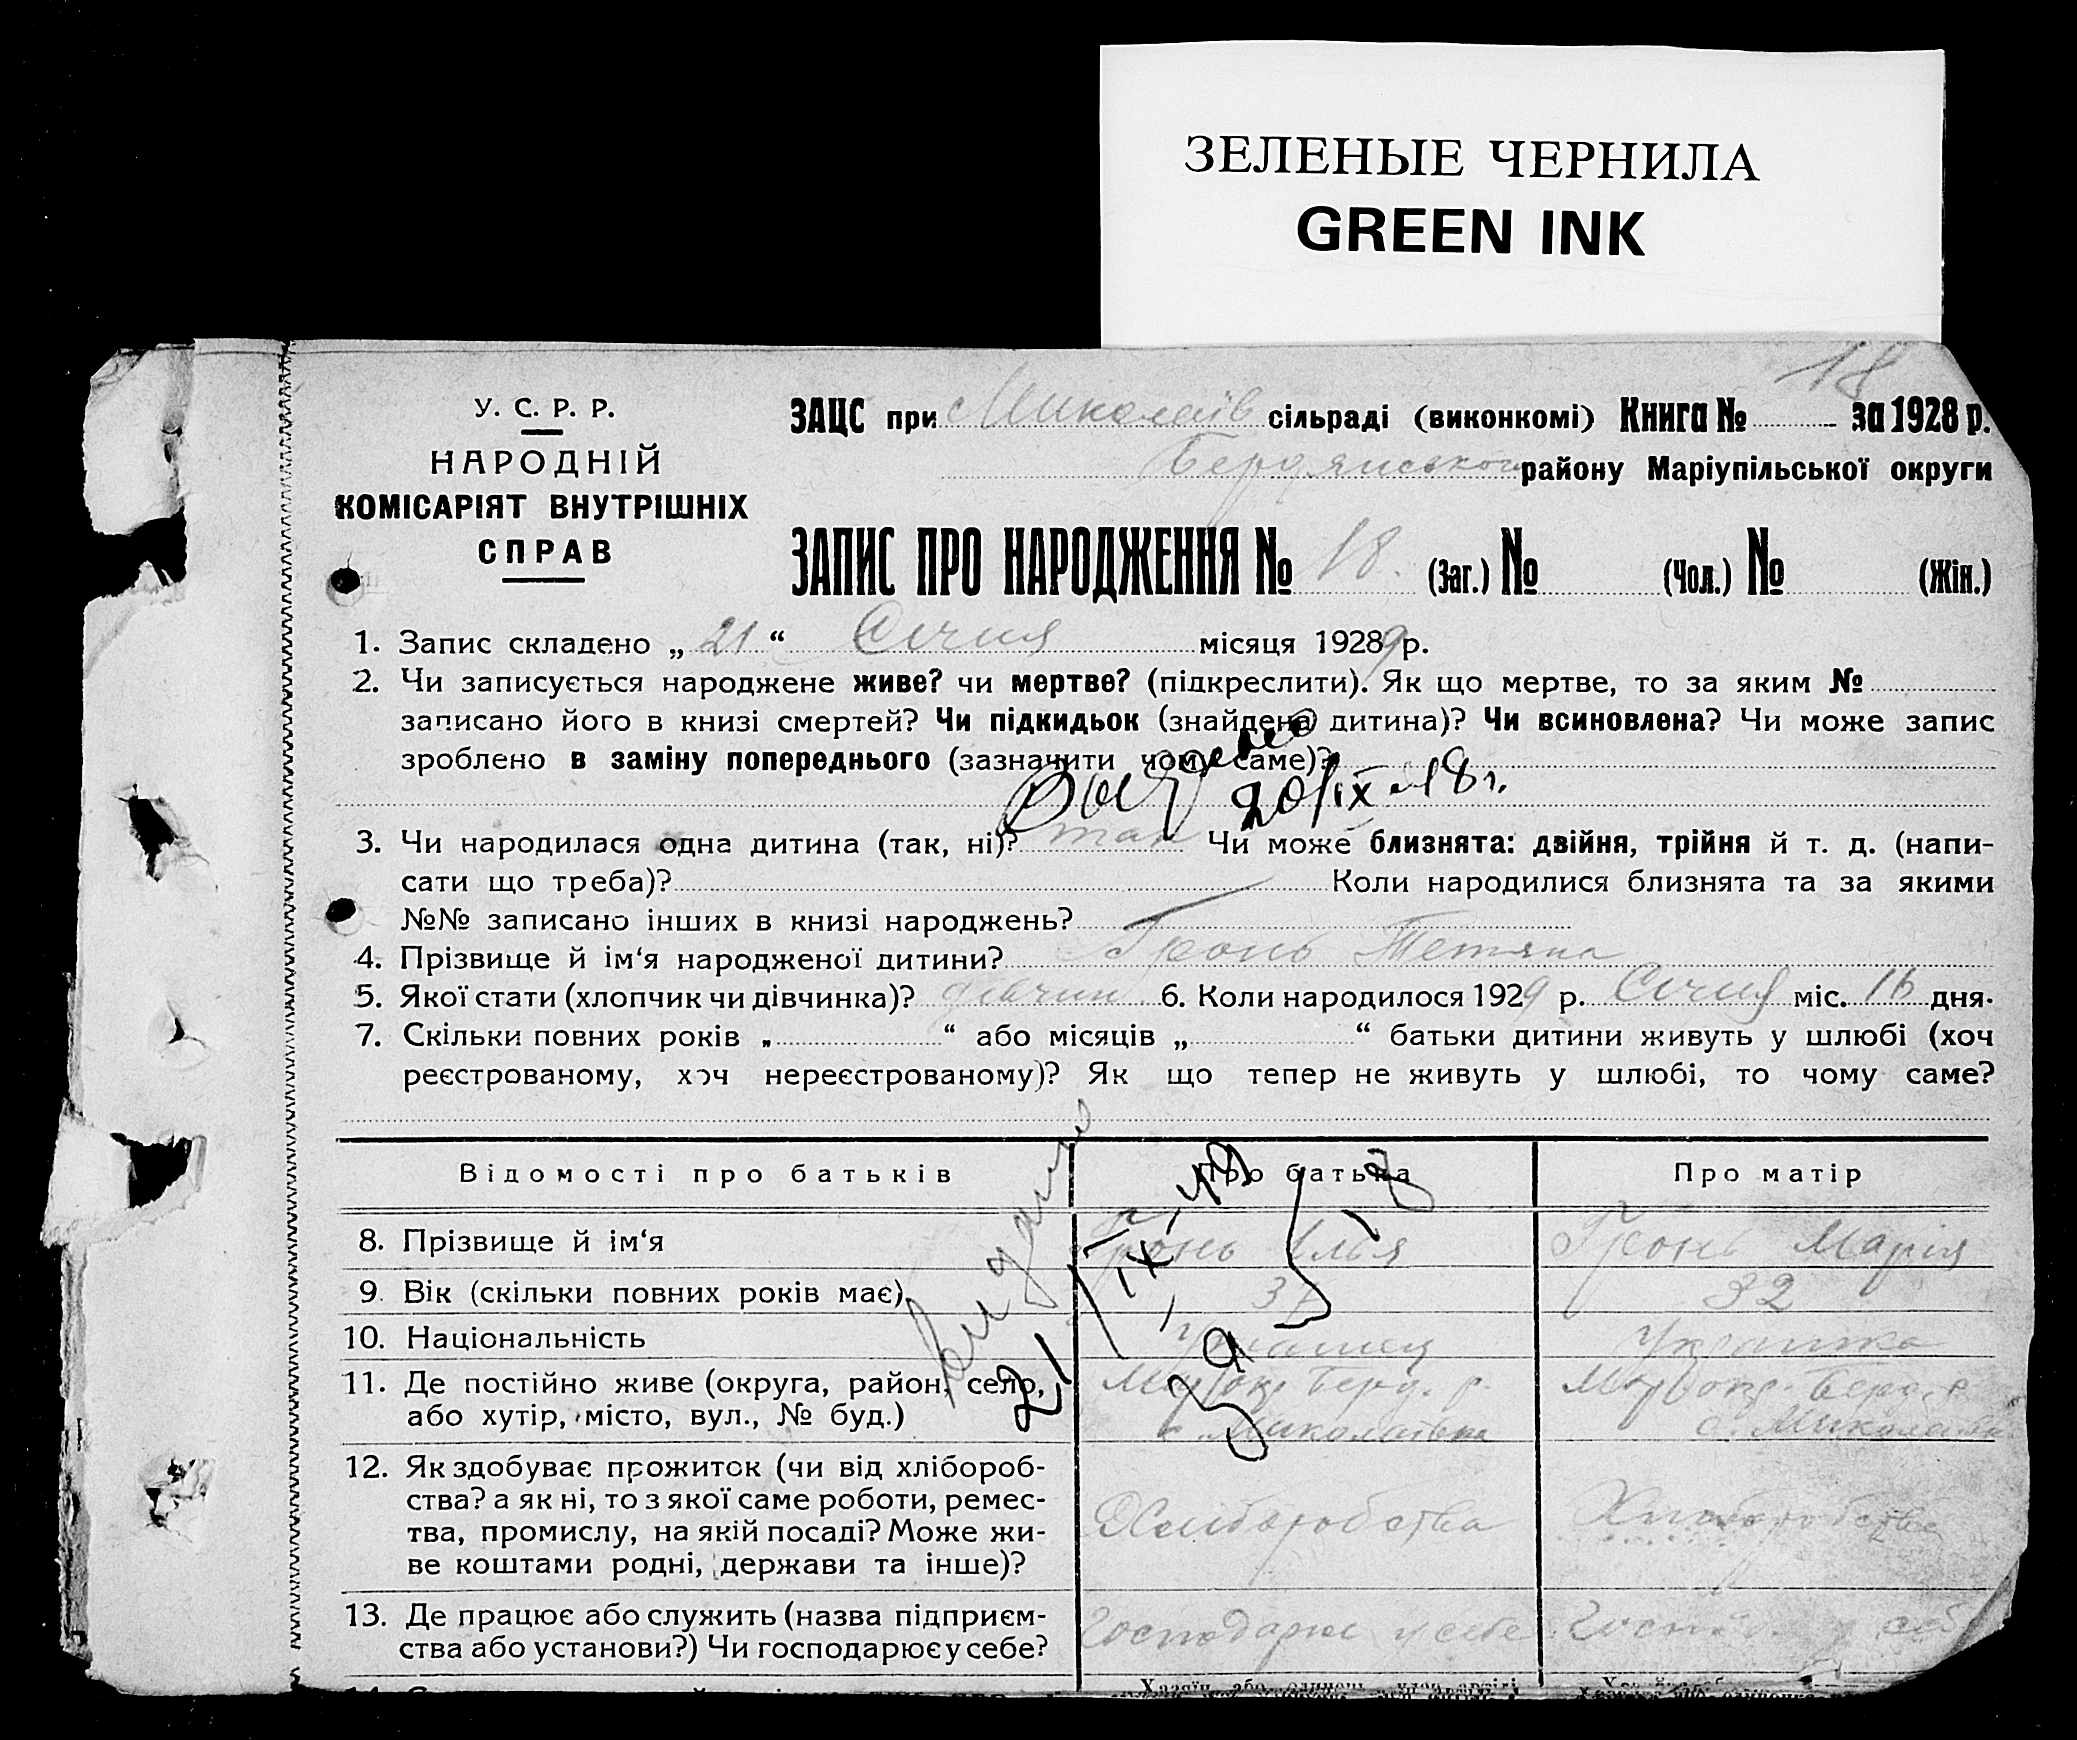 ЗЕЛЕНЫЕ ЧЕРНИЛА
GREEN INK
18
У. С. Р. Р.
НАРОДНІЙ
КОМІСАРІЯТ ВНУТРІШНІХ
СПРАВ
ЗАЦС при Миколаїв сільраді (виконкомі) Книга № за 1928 р.
Бердянського району Маріупільської округи
ЗАПИС ПРО НАРОДЖЕННЯ № 18. (Заг.) № (Чол.) № (Жін.)
1. Запис складено „ 21 “ Січня місяця 19289 р.
2. Чи записується народжене живе? чи мертве? (підкреслити). Як що мертве, то за яким №
записано його в книзі смертей? Чи підкидьок (знайдена дитина)? Чи всиновлена? Чи може запис
зроблено в заміну попереднього (зазначити чому саме)?
20/IX 18 г.
3. Чи народилася одна дитина (так, ні)? так Чи може близнята: двійня, трійня й т. д. (напи-
сати що треба)? Коли народилися близнята та за якими
№№ записано інших в книзі народжень?
4. Прізвище й ім‘я народженої дитини? Гронь Тетяна
5. Якої стати (хлопчик чи дівчинка)? дівчин 6. Коли народилося 1929 р. Січня міс. 16 дня.
7. Скільки повних років „ “ або місяців „ “ батьки дитини живуть у шлюбі (хоч
реєстрованому, хоч нереєстрованому)? Як що тепер не живуть у шлюбі, то чому саме?
Відомості про батьків Про батька Про матір
8. Прізвище й ім‘я Гронь Ілья Гронь Марія
9. Вік (скільки повних років має) 32
10. Національність
11. Де постійно живе (округа, район, село,
або хутір, місто, вул., № буд.) с. Миколаївка с. Миколаївка
12. Як здобуває прожиток (чи від хлібороб-
ства? а як ні, то з якої саме роботи, ремес-
тва, промислу, на якій посаді? Може жи-
ве коштами родні, держави та інше)?
Хліборобства Хліборобства
13. Де працює або служить (назва підприєм-
ства або установи?) Чи господарює у себе?
Господарює у себе